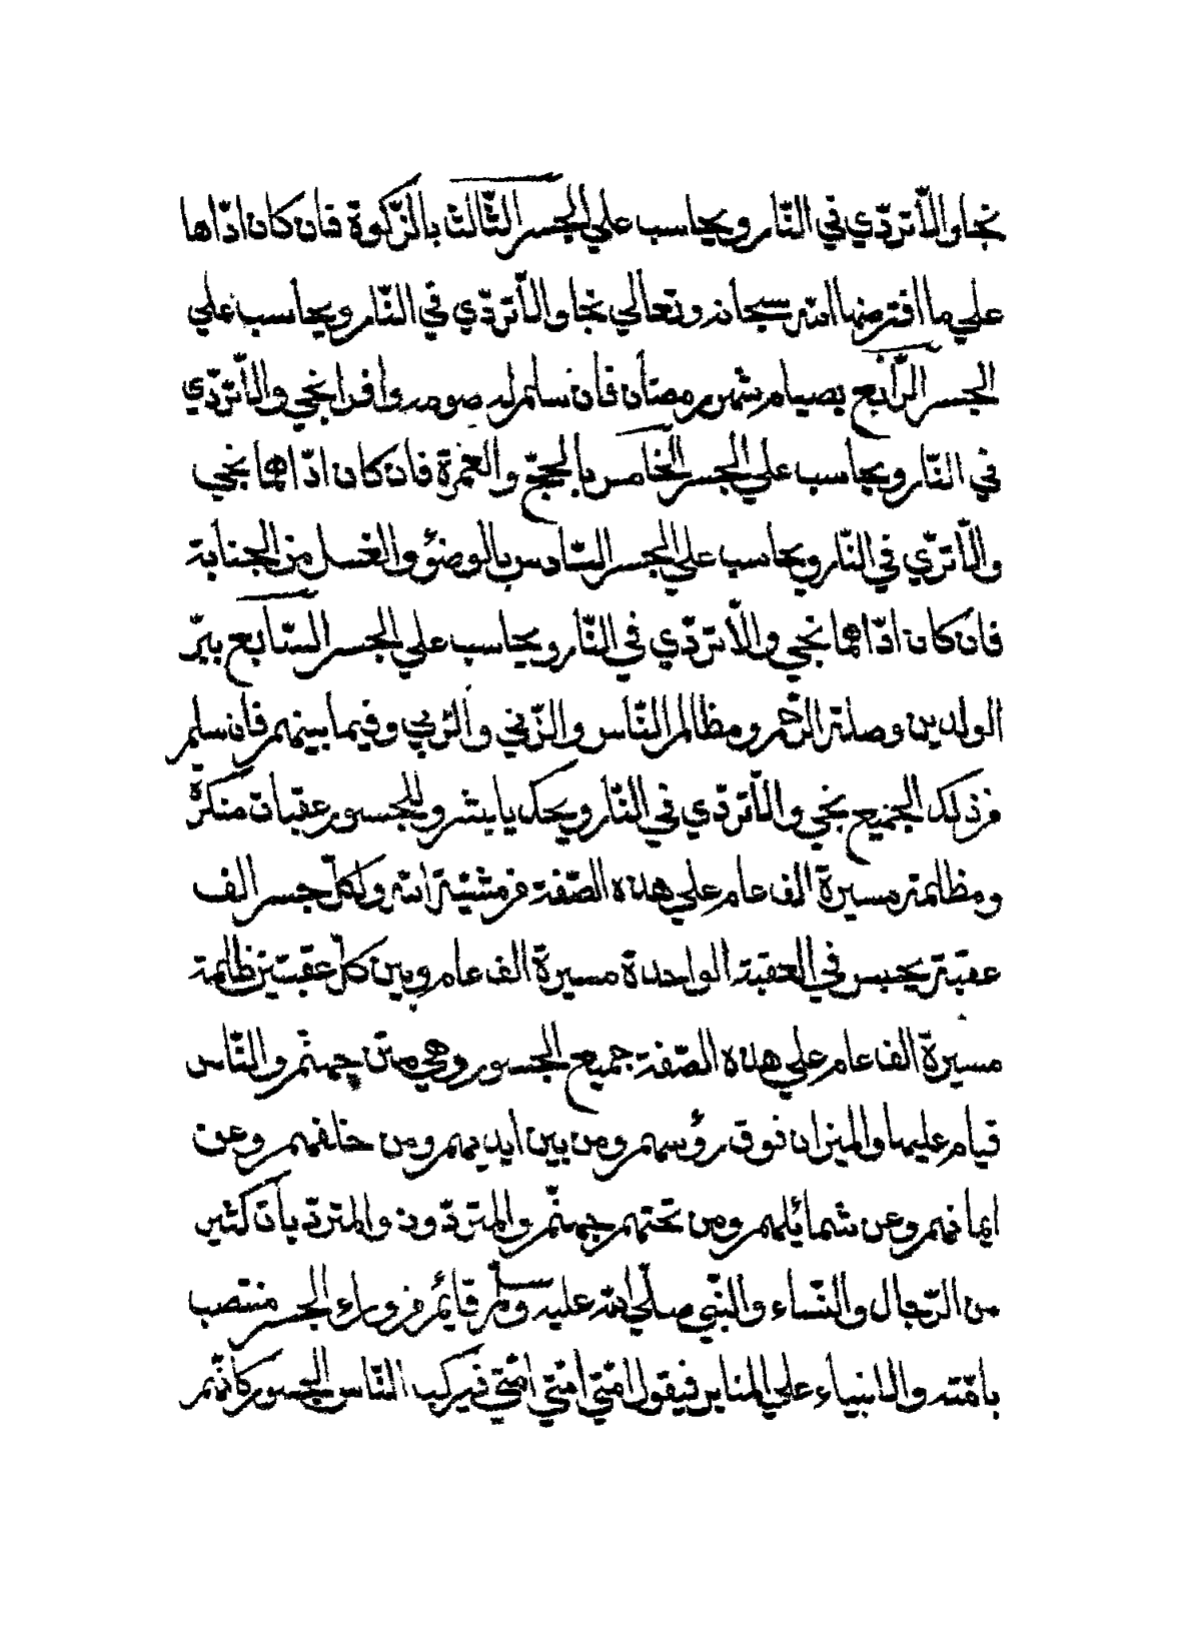 نجا والّا تردّي في النّار ويحاسب علي الجسر الثّالث بالزّكوة فان كان ادّاها
علي ما افترضها الله سبحانه وتعالي نجا والّا تردّي في النّار ويحاسب علي
الجسر الرّابع بصيام شهر رمضان فان سلم له صومه وافرا نجي والّا تردّي
في النّار ويحاسب علي الجسر الخامس بالحجّ والعمرة فان كان ادّاهما نجي
والّا تردّي في النّار ويحاسب علي الجسر السّادس بالوضؤ والغسل من الجنابة
فان كان ادّاهما نجي والّا تردّي في النّار ويحاسب علي الجسر السّابع ببرّ
الولدين وصلة الرّحم ومظالم النّاس والزّني والرّبي وفيما بينهم فان سلم
من ذلك الجميع نجي والّا تردّي في النّار ويحك يا بشر وللجسور عقبات منكرة
ومظالمة مسيرة الف عام علي هذه الصّفة من مشيّة الله ولكلّ جسر الف
عقبة يحبس في العقبة الواحدة مسيرة الف عام وبين كلّ عقبتين ظالمة
مسيرة الف عام علي هذه الصّفة جميع الجسور وهي متن جهنّم والنّاس
قيام عليها والميزان فوق رؤسهم ومن بين ايديهم ومن خلفهم وعن
ايمانهم وعن شمائلهم ومن تحتهم جهنّم والمتردّون والمتردّيات كثير
من الرّجال والنّساء والنّبي صلّي الله عليه وسلّم قائم من وراء الجسر منتصب
بامّته والانبياء علي المنابر فيقول امّتي امّتي امّتي فيركب النّاس الجسور كانّهم